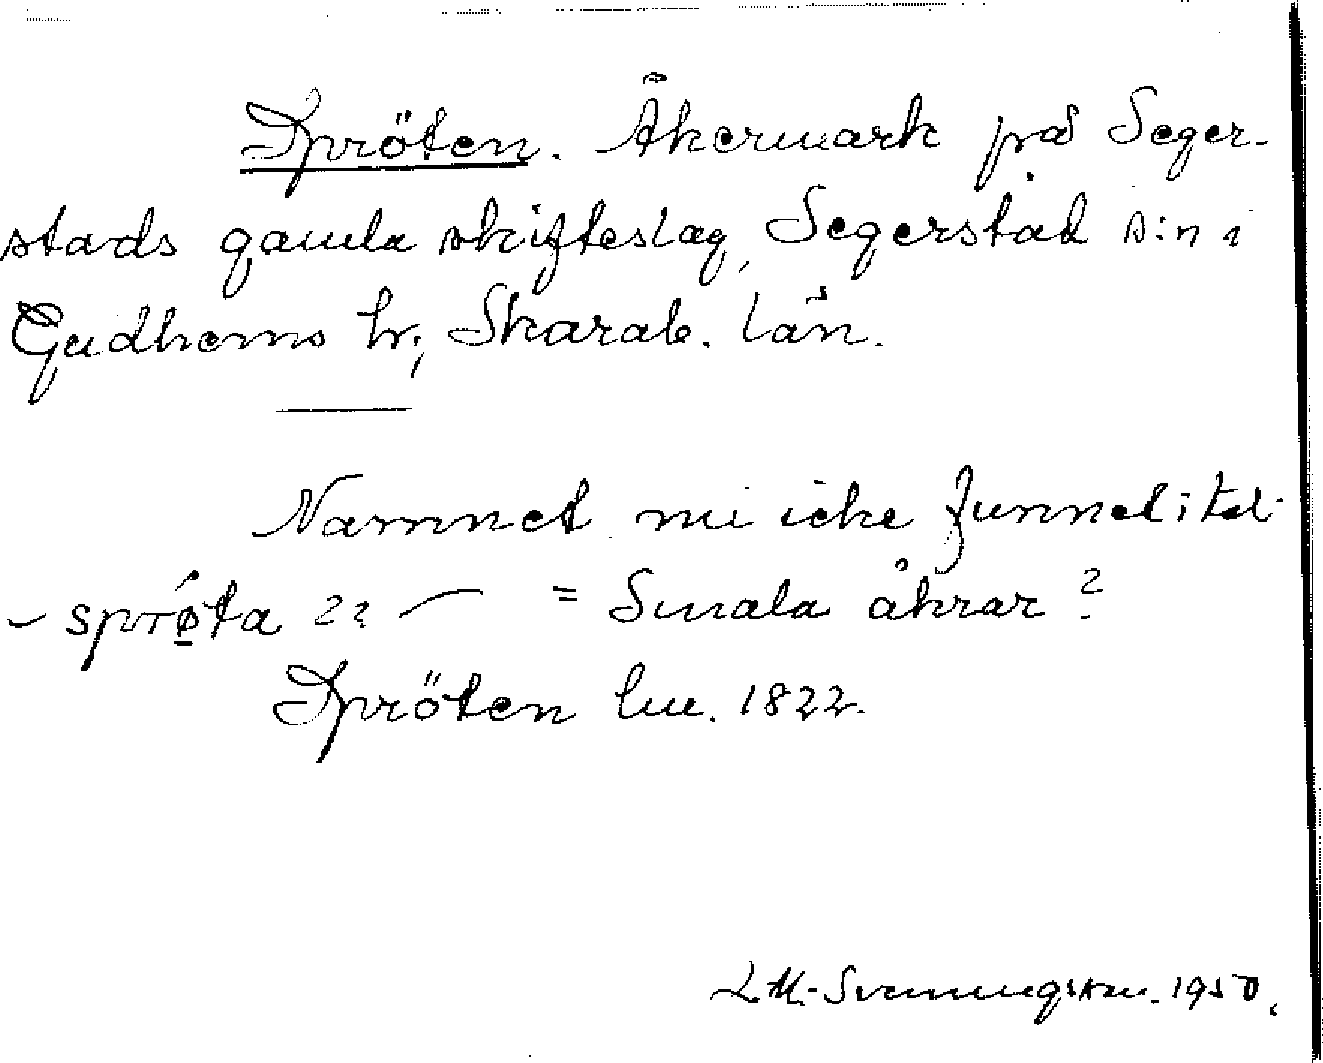 Spröten. Åkermark på Seger-
stads gamla skifteslag, Segerstad s:n i
Gudhems hr, Skarab. län.
Namnet nu icke funnet i tal
- sprǿta 22 — = Smala åkrar?
Spröten lm. 1822.
L M. Svenningsson. 1950.